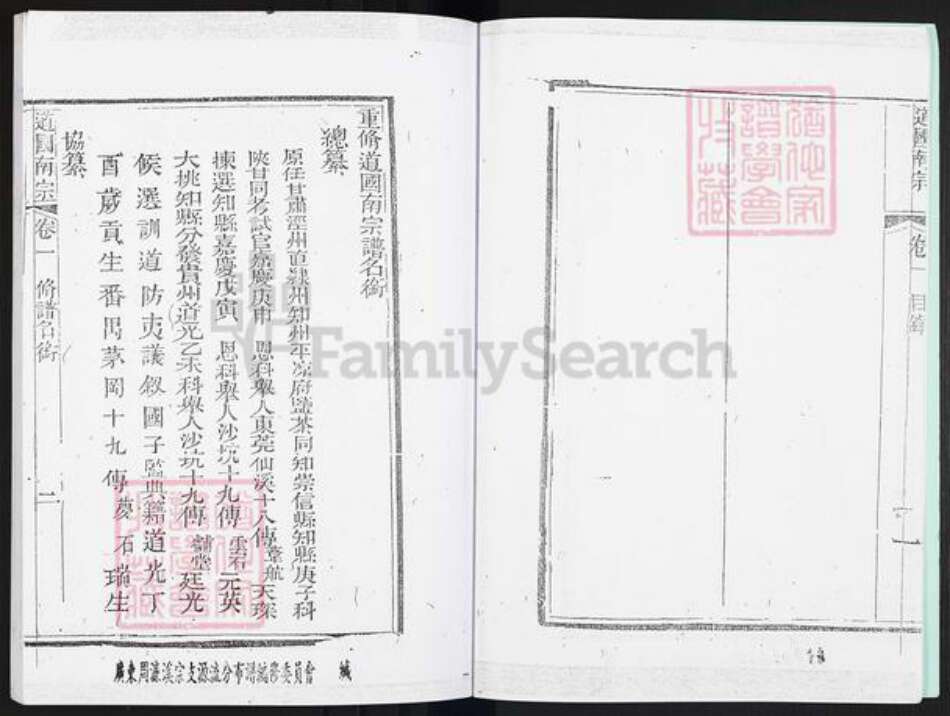 道國南宗 卷一 目錄 一
重脩道國南宗譜名銜
總纂
原任甘肅涇州直隸州知州平凉府鹽茶同知崇信縣知縣庚子科
陝甘同考試官嘉慶庚申 恩科舉人東莞仙溪十八傳葦航天琛
揀選知縣嘉慶戊寅 恩科舉人沙坑十九傳雲石元英
大挑知縣分發貴州道光乙未科舉人沙坑十九傳黼堂廷光
協纂
候選訓道防夷議叙國子監典籍道光丁
酉歲貢生番禺茅岡十九傳蔆石瑞生
道國南宗 卷一 脩譜名銜 二
廣東周濂溪宗支源流分布譜編委員會
FamilySearch